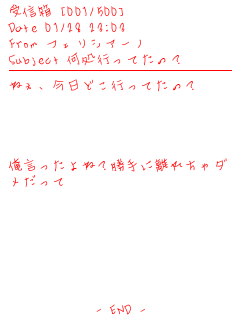 受信箱 [001/500]
Date 01/28 23:08
From フェリシアーノ
Subject 何処行ってたの？
ねぇ、今日どこ行ってたの？
俺言ったよねぇ勝手に離れちゃダ
メだって
- END -